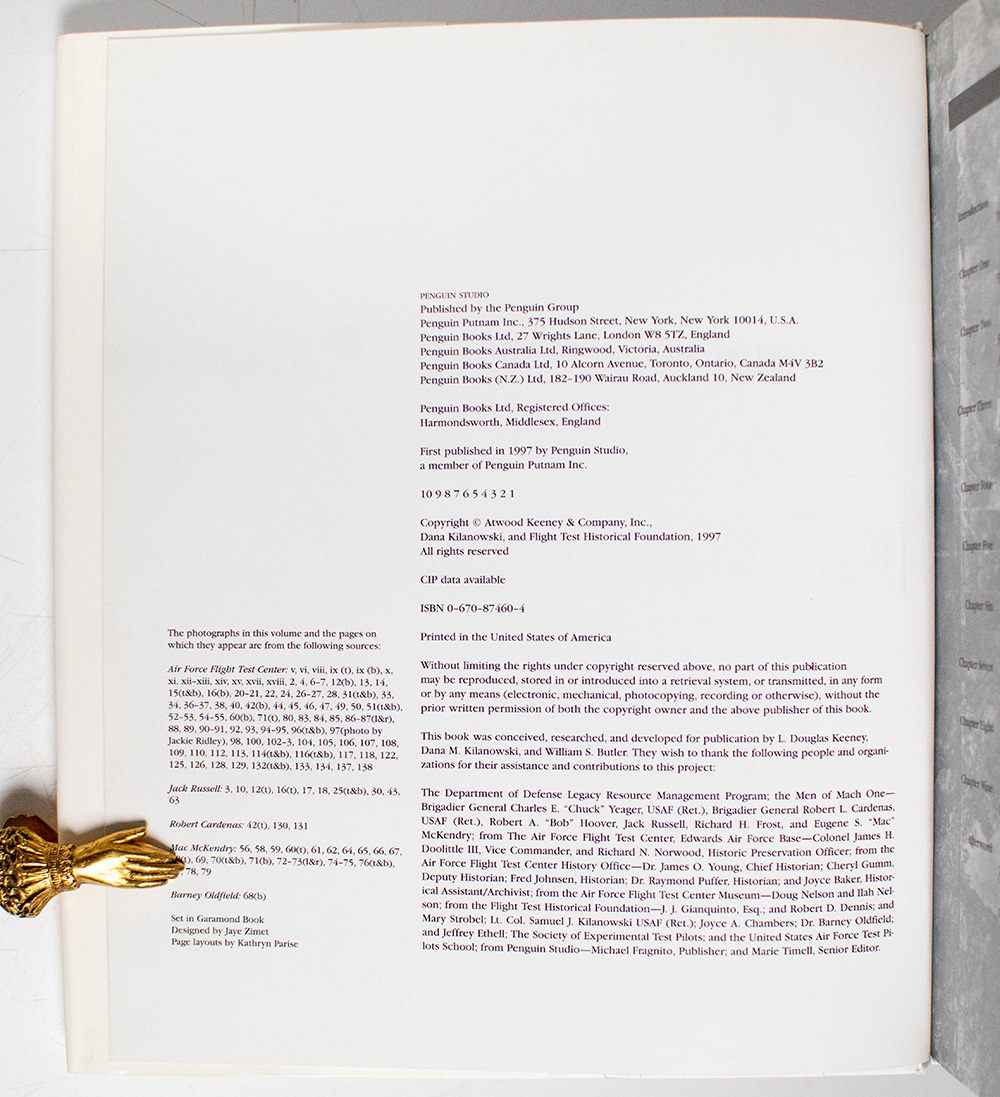 PENGUIN STUDIO
Published by the Penguin Group
Penguin Putnam Inc., 375 Hudson Street, New York, New York 10014, U.S.A.
Penguin Books Ltd, 27 Wrights Lane, London W8 5TZ, England
Penguin Books Australia Ltd, Ringwood, Victoria, Australia
Penguin Books Canada Ltd, 10 Alcorn Avenue, Toronto, Ontario, Canada M4V 3B2
Penguin Books (N.Z.) Ltd, 182-190 Wairau Road, Auckland 10, New Zealand
Penguin Books Ltd, Registered Offices:
Harmondsworth, Middlesex, England
First published in 1997 by Penguin Studio,
a member of Penguin Putnam Inc.
10 9 8 7 6 5 4 3 2 1
Copyright © Atwood Keeney & Company, Inc.,
Dana Kilanowski, and Flight Test Historical Foundation, 1997
All rights reserved
CIP data available
ISBN 0-670-87460-4
Printed in the United States of America
Without limiting the rights under copyright reserved above, no part of this publication
may be reproduced, stored in or introduced into a retrieval system, or transmitted, in any form
or by any means (electronic, mechanical, photocopying, recording or otherwise), without the
prior written permission of both the copyright owner and the above publisher of this book.
This book was conceived, researched, and developed for publication by L. Douglas Keeney,
Dana M. Kilanowski, and William S. Butler. They wish to thank the following people and organi-
zations for their assistance and contributions to this project:
The Department of Defense Legacy Resource Management Program; the Men of Mach One—
Brigadier General Charles E. "Chuck" Yeager, USAF (Ret.), Brigadier General Robert L. Cardenas,
USAF (Ret.), Robert A. "Bob" Hoover, Jack Russell, Richard H. Frost, and Eugene S. "Mac"
McKendry; from The Air Force Flight Test Center, Edwards Air Force Base—Colonel James H.
Doolittle III, Vice Commander, and Richard N. Norwood, Historic Preservation Officer; from the
Air Force Flight Test Center History Office—Dr. James O. Young, Chief Historian; Cheryl Gumm,
Deputy Historian; Fred Johnsen, Historian; Dr. Raymond Puffer, Historian; and Joyce Baker, Histor-
ical Assistant/Archivist; from the Air Force Flight Test Center Museum—Doug Nelson and Ilah Nel-
son; from the Flight Test Historical Foundation—J. J. Gianquinto, Esq.; and Robert D. Dennis; and
Mary Strobel; Lt. Col. Samuel J. Kilanowski USAF (Ret.); Joyce A. Chambers; Dr. Barney Oldfield;
and Jeffrey Ethell; The Society of Experimental Test Pilots; and the United States Air Force Test Pi-
lots School; from Penguin Studio—Michael Fragnito, Publisher; and Marie Timell, Senior Editor.
The photographs in this volume and the pages on
which they appear are from the following sources:
Air Force Flight Test Center: v, vi, viii, ix (t), ix (b), x,
xi, xii-xiii, xiv, xv, xvii, xviii, 2, 4, 6-7, 12(b), 13, 14,
15(t&b), 16(b), 20-21, 22, 24, 26-27, 28, 31(t&b), 33,
34, 36-37, 38, 40, 42(b), 44, 45, 46, 47, 49, 50, 51(t&b),
52-53, 54-55, 60(b), 71(t), 80, 83, 84, 85, 86-87(l&r),
88, 89, 90-91, 92, 93, 94-95, 96(t&b), 97(photo by
Jackie Ridley), 98, 100, 102-3, 104, 105, 106, 107, 108,
109, 110, 112, 113, 114(t&b), 116(t&b), 117, 118, 122,
125, 126, 128, 129, 132(t&b), 133, 134, 137, 138
Jack Russell: 3, 10, 12(t), 16(t), 17, 18, 25(t&b), 30, 43,
63
Robert Cardenas: 42(t), 130, 131
Mac McKendry: 56, 58, 59, 60(t), 61, 62, 64, 65, 66, 67,
69, 70(t&b), 71(b), 72-73(l&r), 74-75, 76(t&b),
78, 79
Barney Oldfield: 68(b)
Set in Garamond Book
Designed by Jaye Zimet
Page layouts by Kathryn Parise
Introduction
Chapter One
Chapter Two
Chapter Three
Chapter Four
Chapter Five
Chapter Six
Chapter Seven
Chapter Eight
Chapter Nine